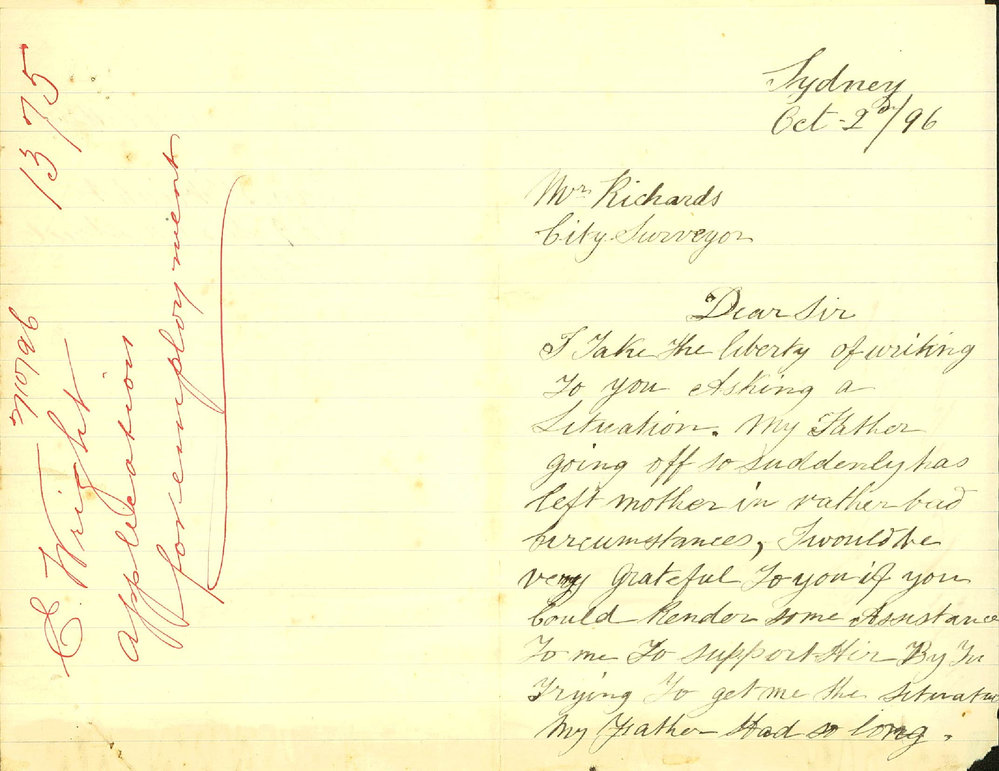 E. Wright 2/10/96 1375
application
for employment
Sydney
Oct - 2d/96
Mr Richards
City Surveyor
Dear Sir
I Take the liberty of writing
To you Asking a
Situation. My Father
going off so suddenly has
left mother in rather bad
circumstances, I would be
very Grateful To you if you
Could Render some Assistance
To me To support Hir By
Trying To get me the
My Father Had so long.